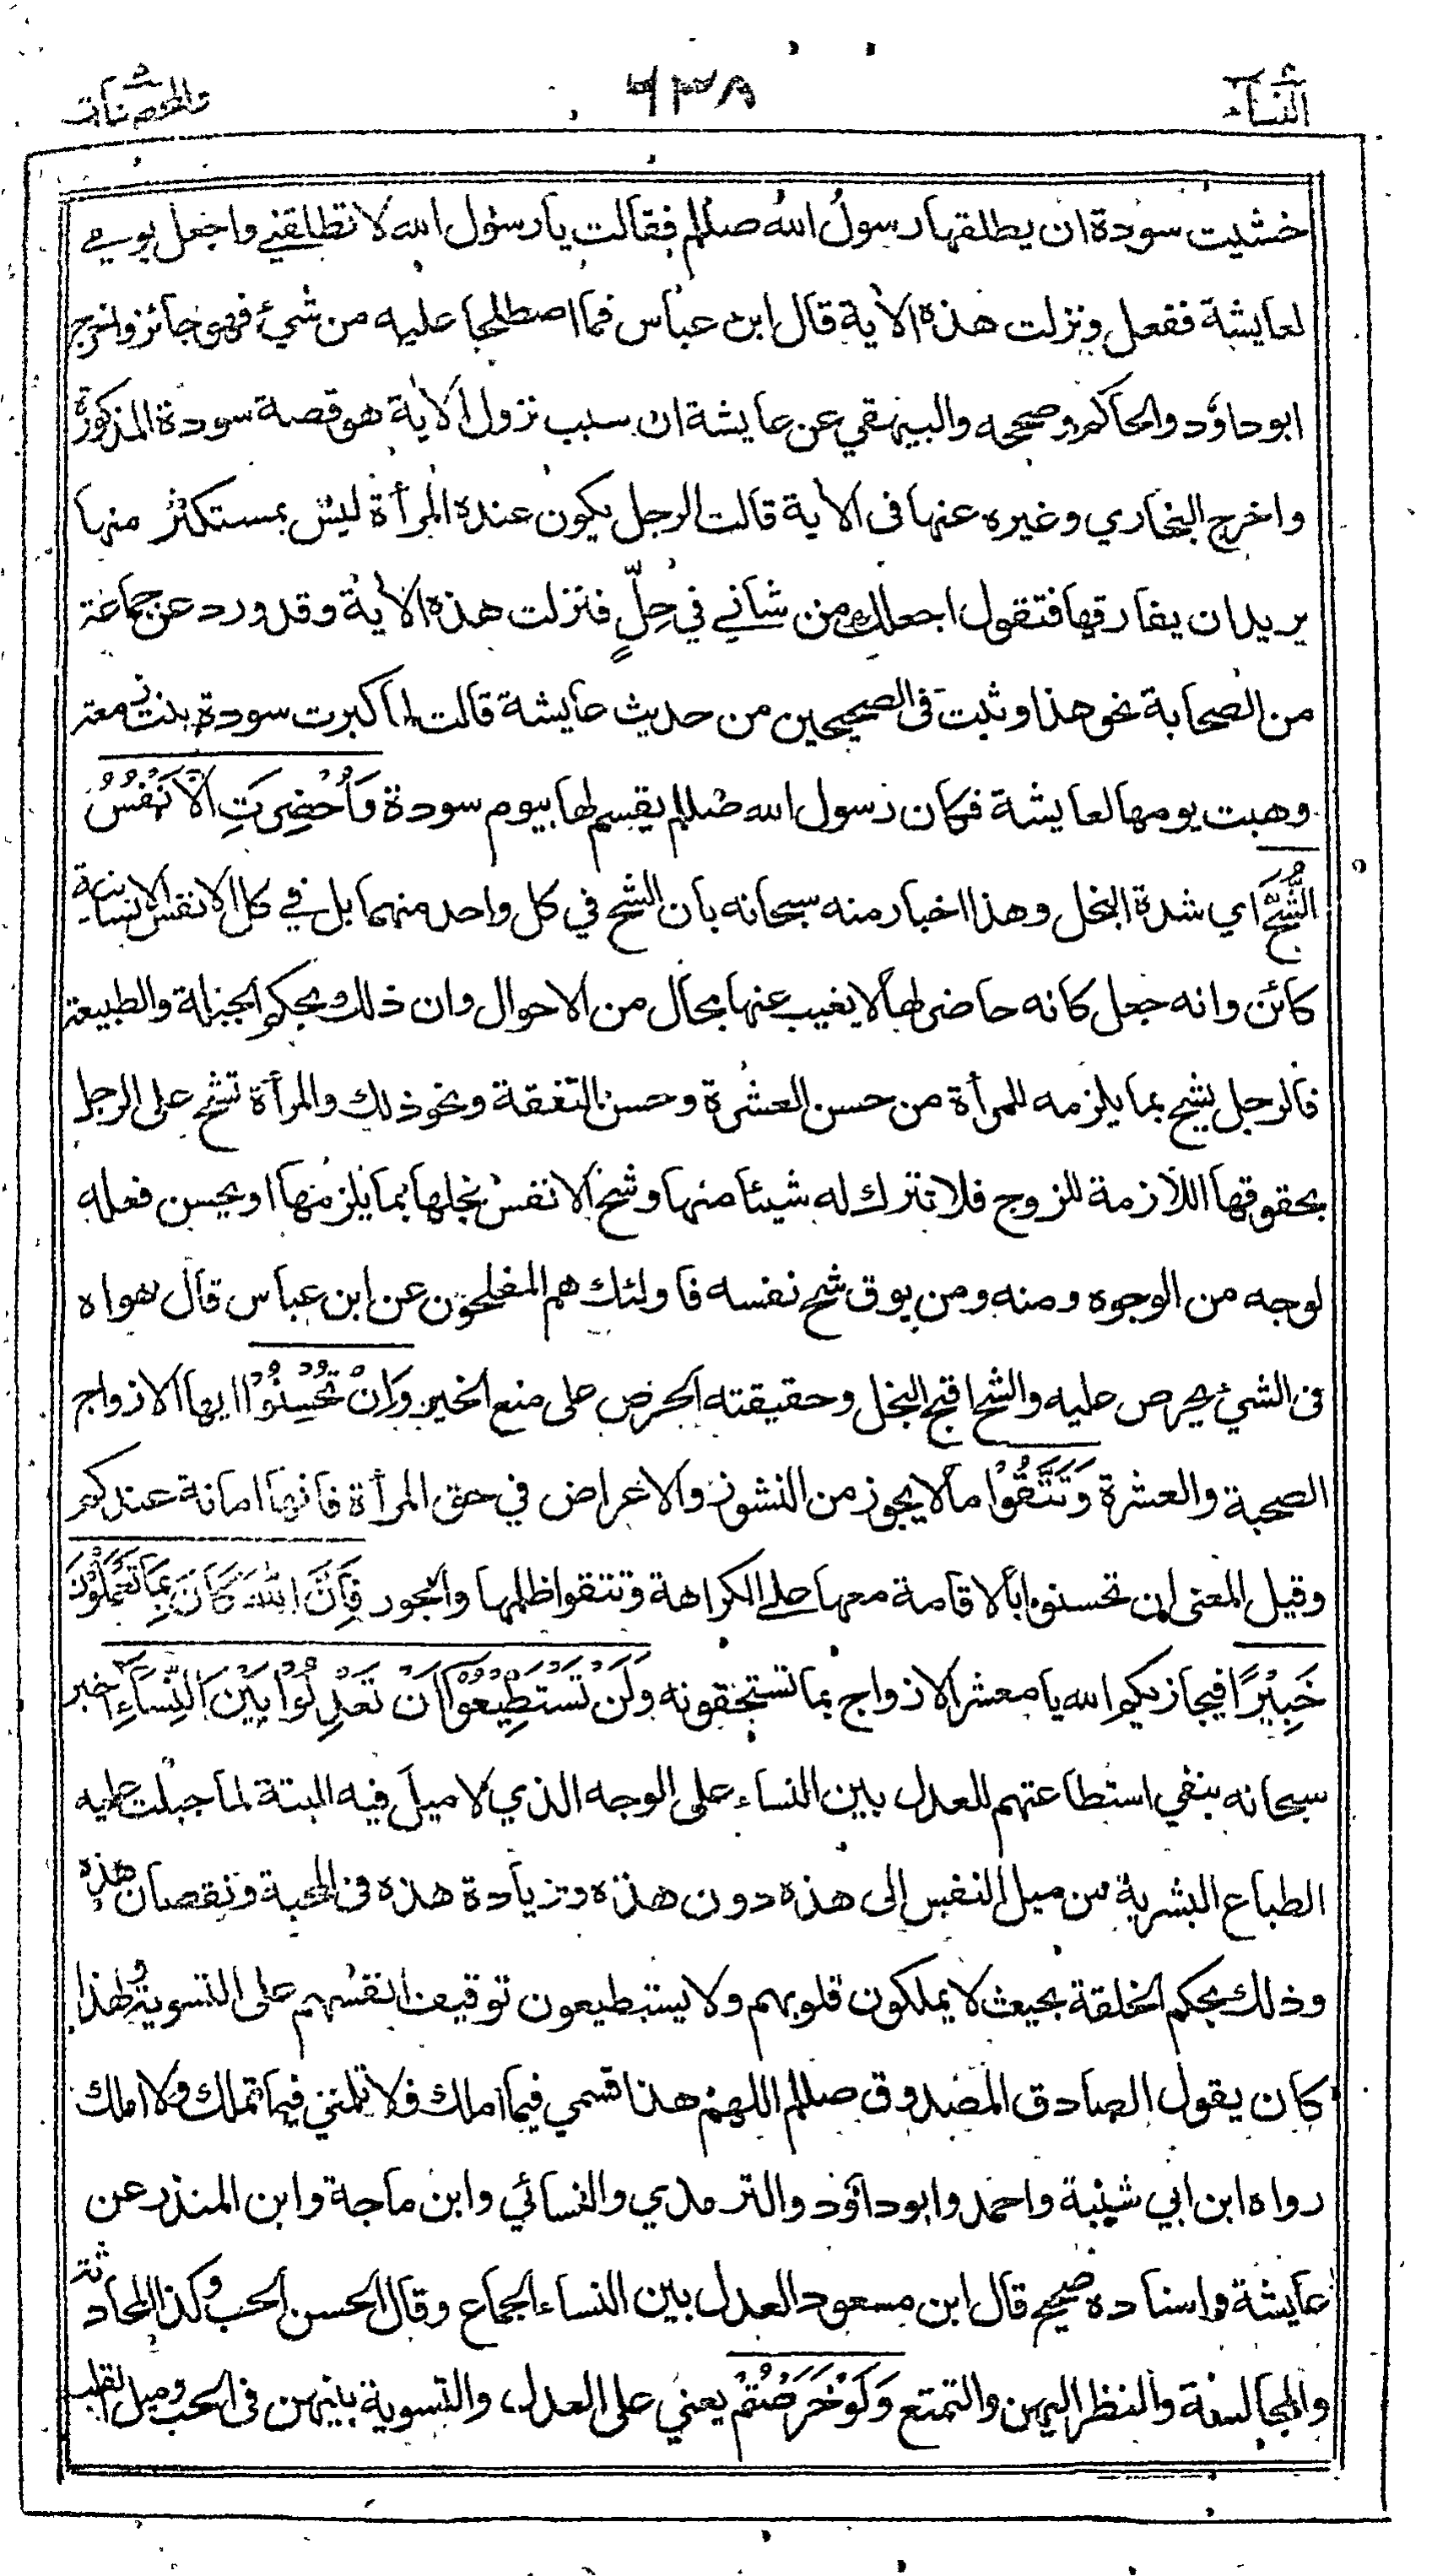 النساء ٦٣٨ والمحصنات
خشيت سودة ان يطلقها رسول الله صللم فقالت يا رسول الله لا تطلقني واجعل يومي
لعايشة ففعل ونزلت هذه الأية قال ابن عباس فما اصطلحا عليه من شيئ فهو جائز واخرج
ابو داؤد والحاكم وصححه والبيهقي عن عايشة ان سبب نزول الأية هو قصة سودة المذكورة
واخرج البخاري وغيره عنها فى الأية قالت الرجل يكون عنده المرأة ليس بمستكثر منها
يريد ان يفارقها فتقول اجعلك من شاني في حِلٍّ فنزلت هذه الأية وقد ورد عن جماعة
من الصحابة نحو هذا وثبت فى الصحيحين من حديث عايشة قالت لما كبرت سودة بنت زمعة
وهبت يومها لعايشة فكان رسول الله صللم يقسم لها بيوم سودة وَأُحْضِرَتِ الْأَنْفُسُ
الشُّحَّ اي شدة البخل وهذا اخبار منه سبحانه بان الشح في كل واحد منهما بل في كل الانفس الانسانية
كائن وانه جعل كانه حاضر لها لا يغيب عنها بحال من الاحوال وان ذلك بحكم الجبلة والطبيعة
فالرجل يشح بما يلزمه للمرأة من حسن العشرة وحسن النفقة ونحو ذلك والمرأة تشح على الرجل
بحقوقها اللازمة للزوج فلا تترك له شيئا منها وشح الانفس بخلها بما يلزمها او يحسن فعله
لوجه من الوجوه ومنه ومن يوق شح نفسه فاولئك هم المفلحون عن ابن عباس قال هواه
فى الشيئ يحرص عليه والشح اقبح البخل وحقيقته الحرص على منع الخير وَاِنْ تُحْسِنُوْا ايها الازواج
الصحبة والعشرة وَتَتَّقُوْا ما لا يجوز من النشوز والاعراض في حق المرأة فانها امانة عندكم
وقيل المعنى ان تحسنوا بالاقامة معها على الكراهة وتتقوا ظلمها والجور فَاِنَّ اللّٰهَ كَانَ بِمَا تَعْمَلُوْنَ
خَبِيْرًا فيجازيكم الله يا معشر الازواج بما تستحقونه وَلَنْ تَسْتَطِيْعُوْٓا اَنْ تَعْدِلُوْا بَيْنَ النِّسَآءِ اخبر
سبحانه بنفي استطاعتهم للعدل بين النساء على الوجه الذي لا ميل فيه البتة لما جبلت عليه
الطباع البشرية من ميل النفس إلى هذه دون هذه وزيادة هذه فى المحبة ونقصان هذه
وذلك بحكم الخلقة بحيث لا يملكون قلوبهم ولا يستطيعون توقيف انفسهم على التسوية ولهذا
كان يقول الصادق المصدوق صللم اللهم هذا قسمي فيما املك فلا تلمني فيما تملك ولا املك
رواه ابن ابي شيبة واحمد وابو داؤد والترمذي والنسائي وابن ماجة وابن المنذر عن
عايشة واسناده صحيح قال ابن مسعود العدل بين النساء الجماع وقال الحسن الحب وكذا المحادثة
والمجالسة والنظر اليهن والتمتع وَلَوْ حَرَصْتُمْ يعني على العدل، والتسوية بينهن فى الحب وميل القلب